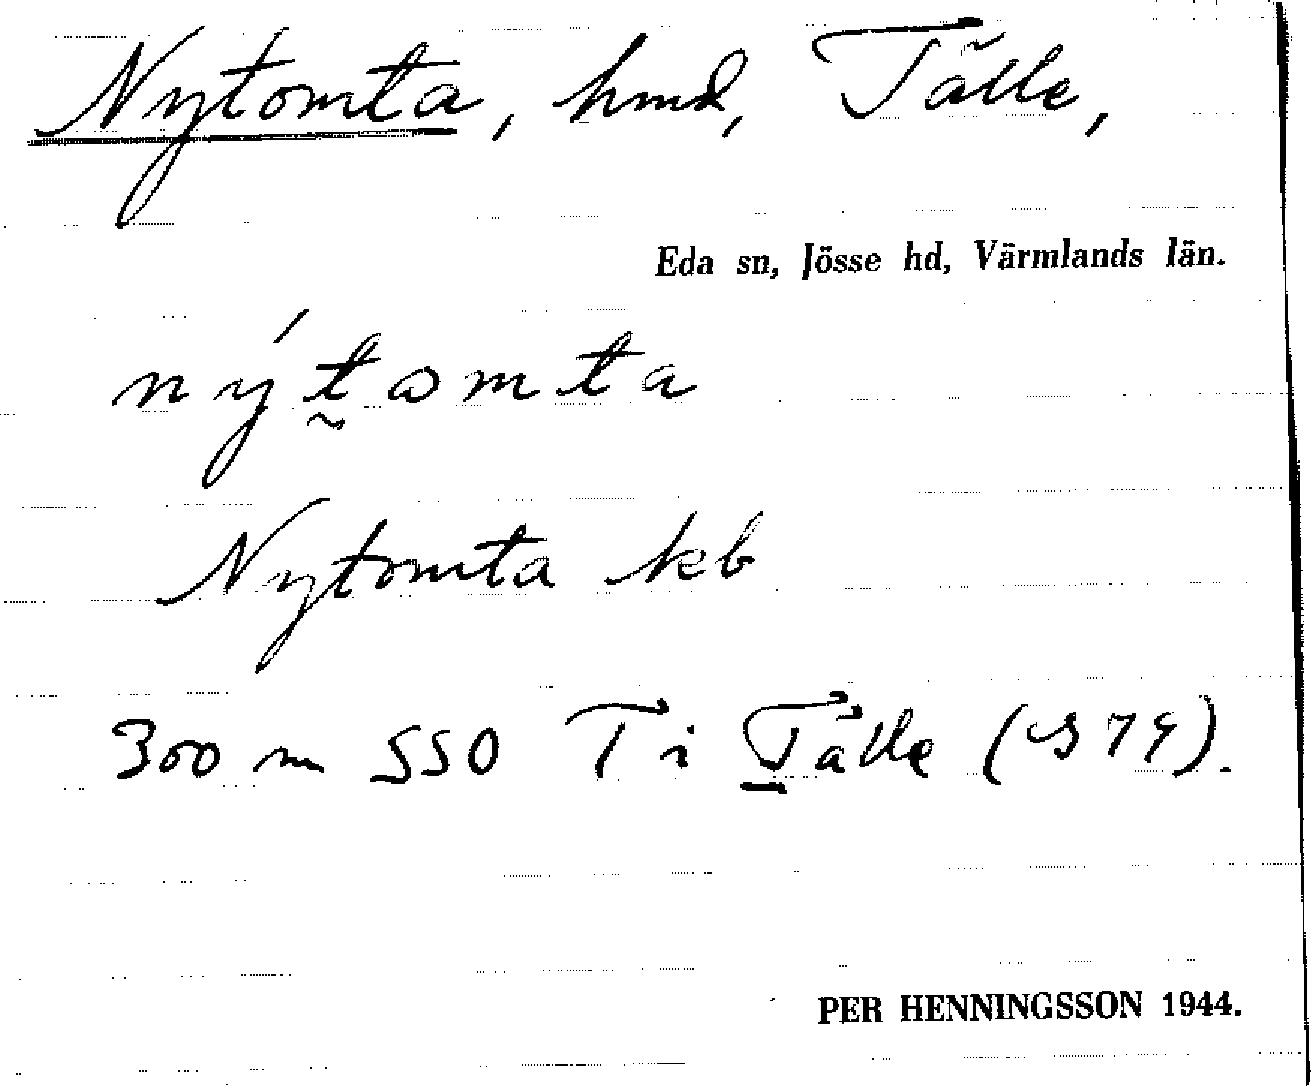 Nytomta, hmd, Tälle,
Eda sn, Jösse hd, Värmlands län.
nýtωmta
Nytomta kb
300 m SSO T i Tälle (S 79).
PER HENNINGSSON 1944.